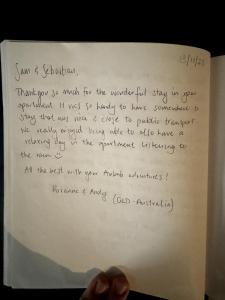 13/11/23
Sam & Sebastian,
Thankyou so much for the wonderful stay in your
apartment. It was so handy to have somewhere to
stay that was near & close to public transport.
We really enjoyed being able to also have a
relaxing day in the apartment listening to
the rain ☺
All the best with your Airbnb adventures!
Roxanne & Andy
(QLD - Australia)